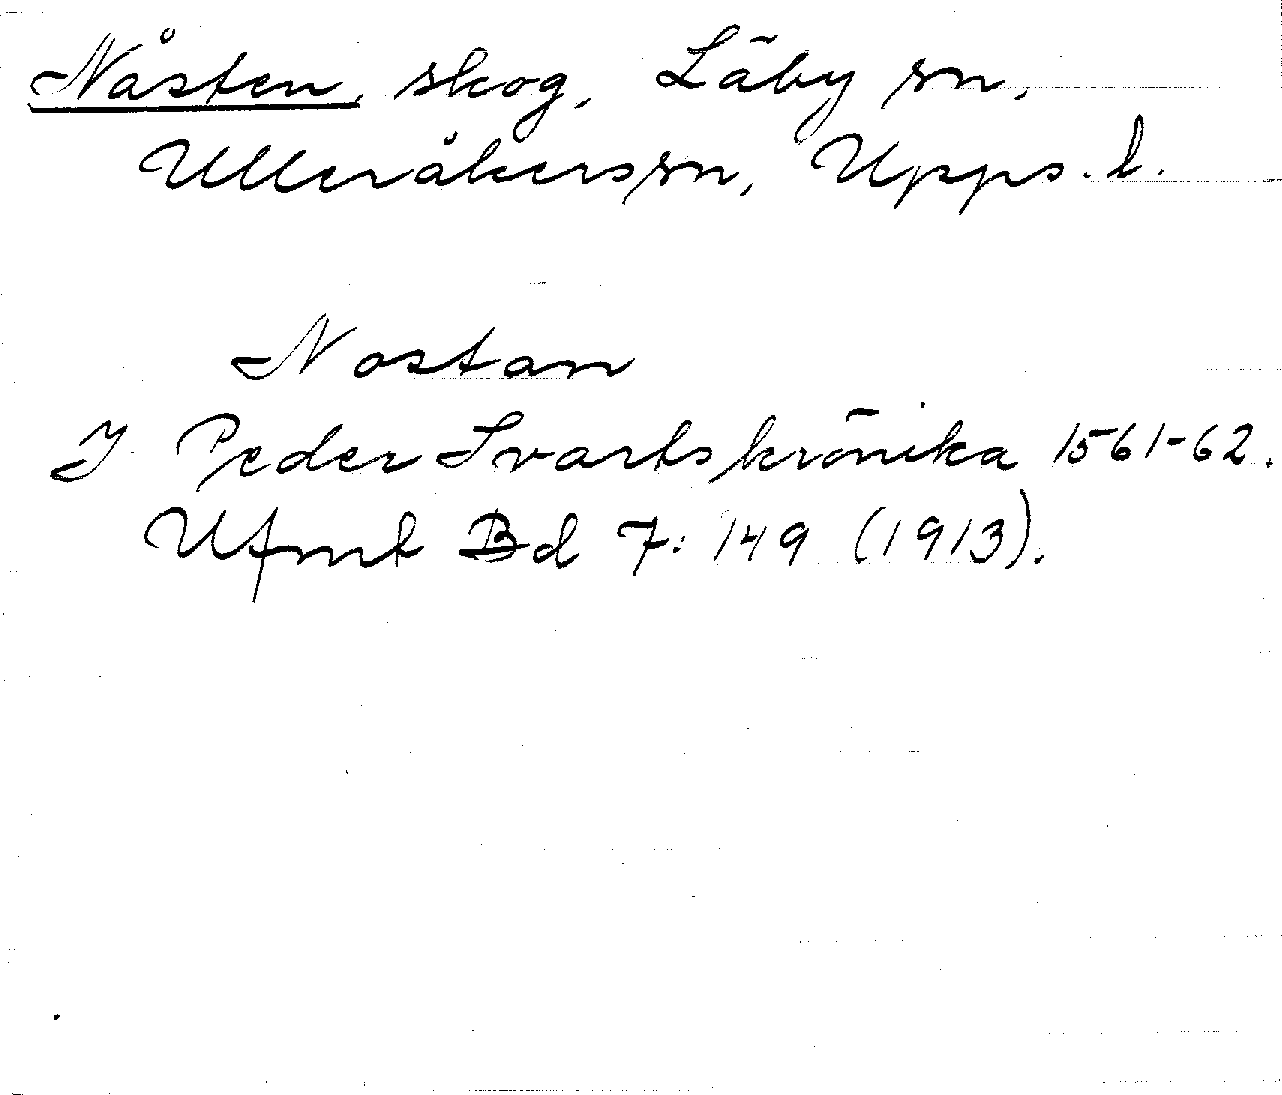 Nåsten, skog, Läby sn,
Ulleråkers sn, Upps. l.
Nostan
I Peder Svarts krönika 1561-62.
Ufmt Bd 7: 149 (1913).